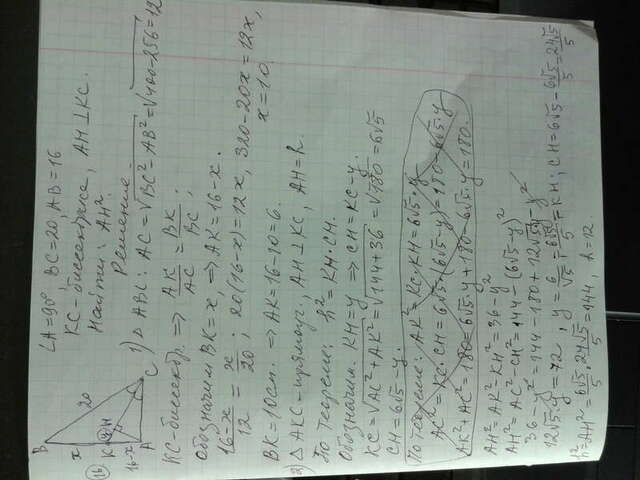 11
B
x
K
16-x
A
20
H
C
∠A=90°, BC=20, AB=16
KC-биссектриса, AH⊥KC.
Найти: AH².
Решение:
1) △ABC: AC=√BC²-AB²=√400-256=12
KC-биссектр. ⇒ AK/AC = BK/BC;
Обозначим BK=x ⇒ AK=16-x.
16-x/12 = x/20; 20(16-x)=12x, 320-20x=12x,
x=10.
BK=10см. ⇒ AK=16-10=6.
2) △AKC-прямоуг, AH⊥KC, AH=h.
По теореме: h²=KH·CH.
Обозначим: KH=y ⇒ CH=KC-y.
KC=√AC²+AK²=√144+36=√180=6√5
CH=6√5-y.
По теореме: AK²=KC·KH=6√5·y
AC²=KC·CH=6√5(6√5-y)=180-6√5·y
AK²+AC²=180=6√5·y+180-6√5·y=180.
AH²=AK²-KH²=36-y²
AH²=AC²-CH²=144-(6√5-y)²
36-y²=144-180+12√5y-y²
12√5·y=72, y=6/√5=6√5/5=KH; CH=6√5-6√5/5=24√5/5
h²=AH²=6√5/5·24√5/5=144, h=12.